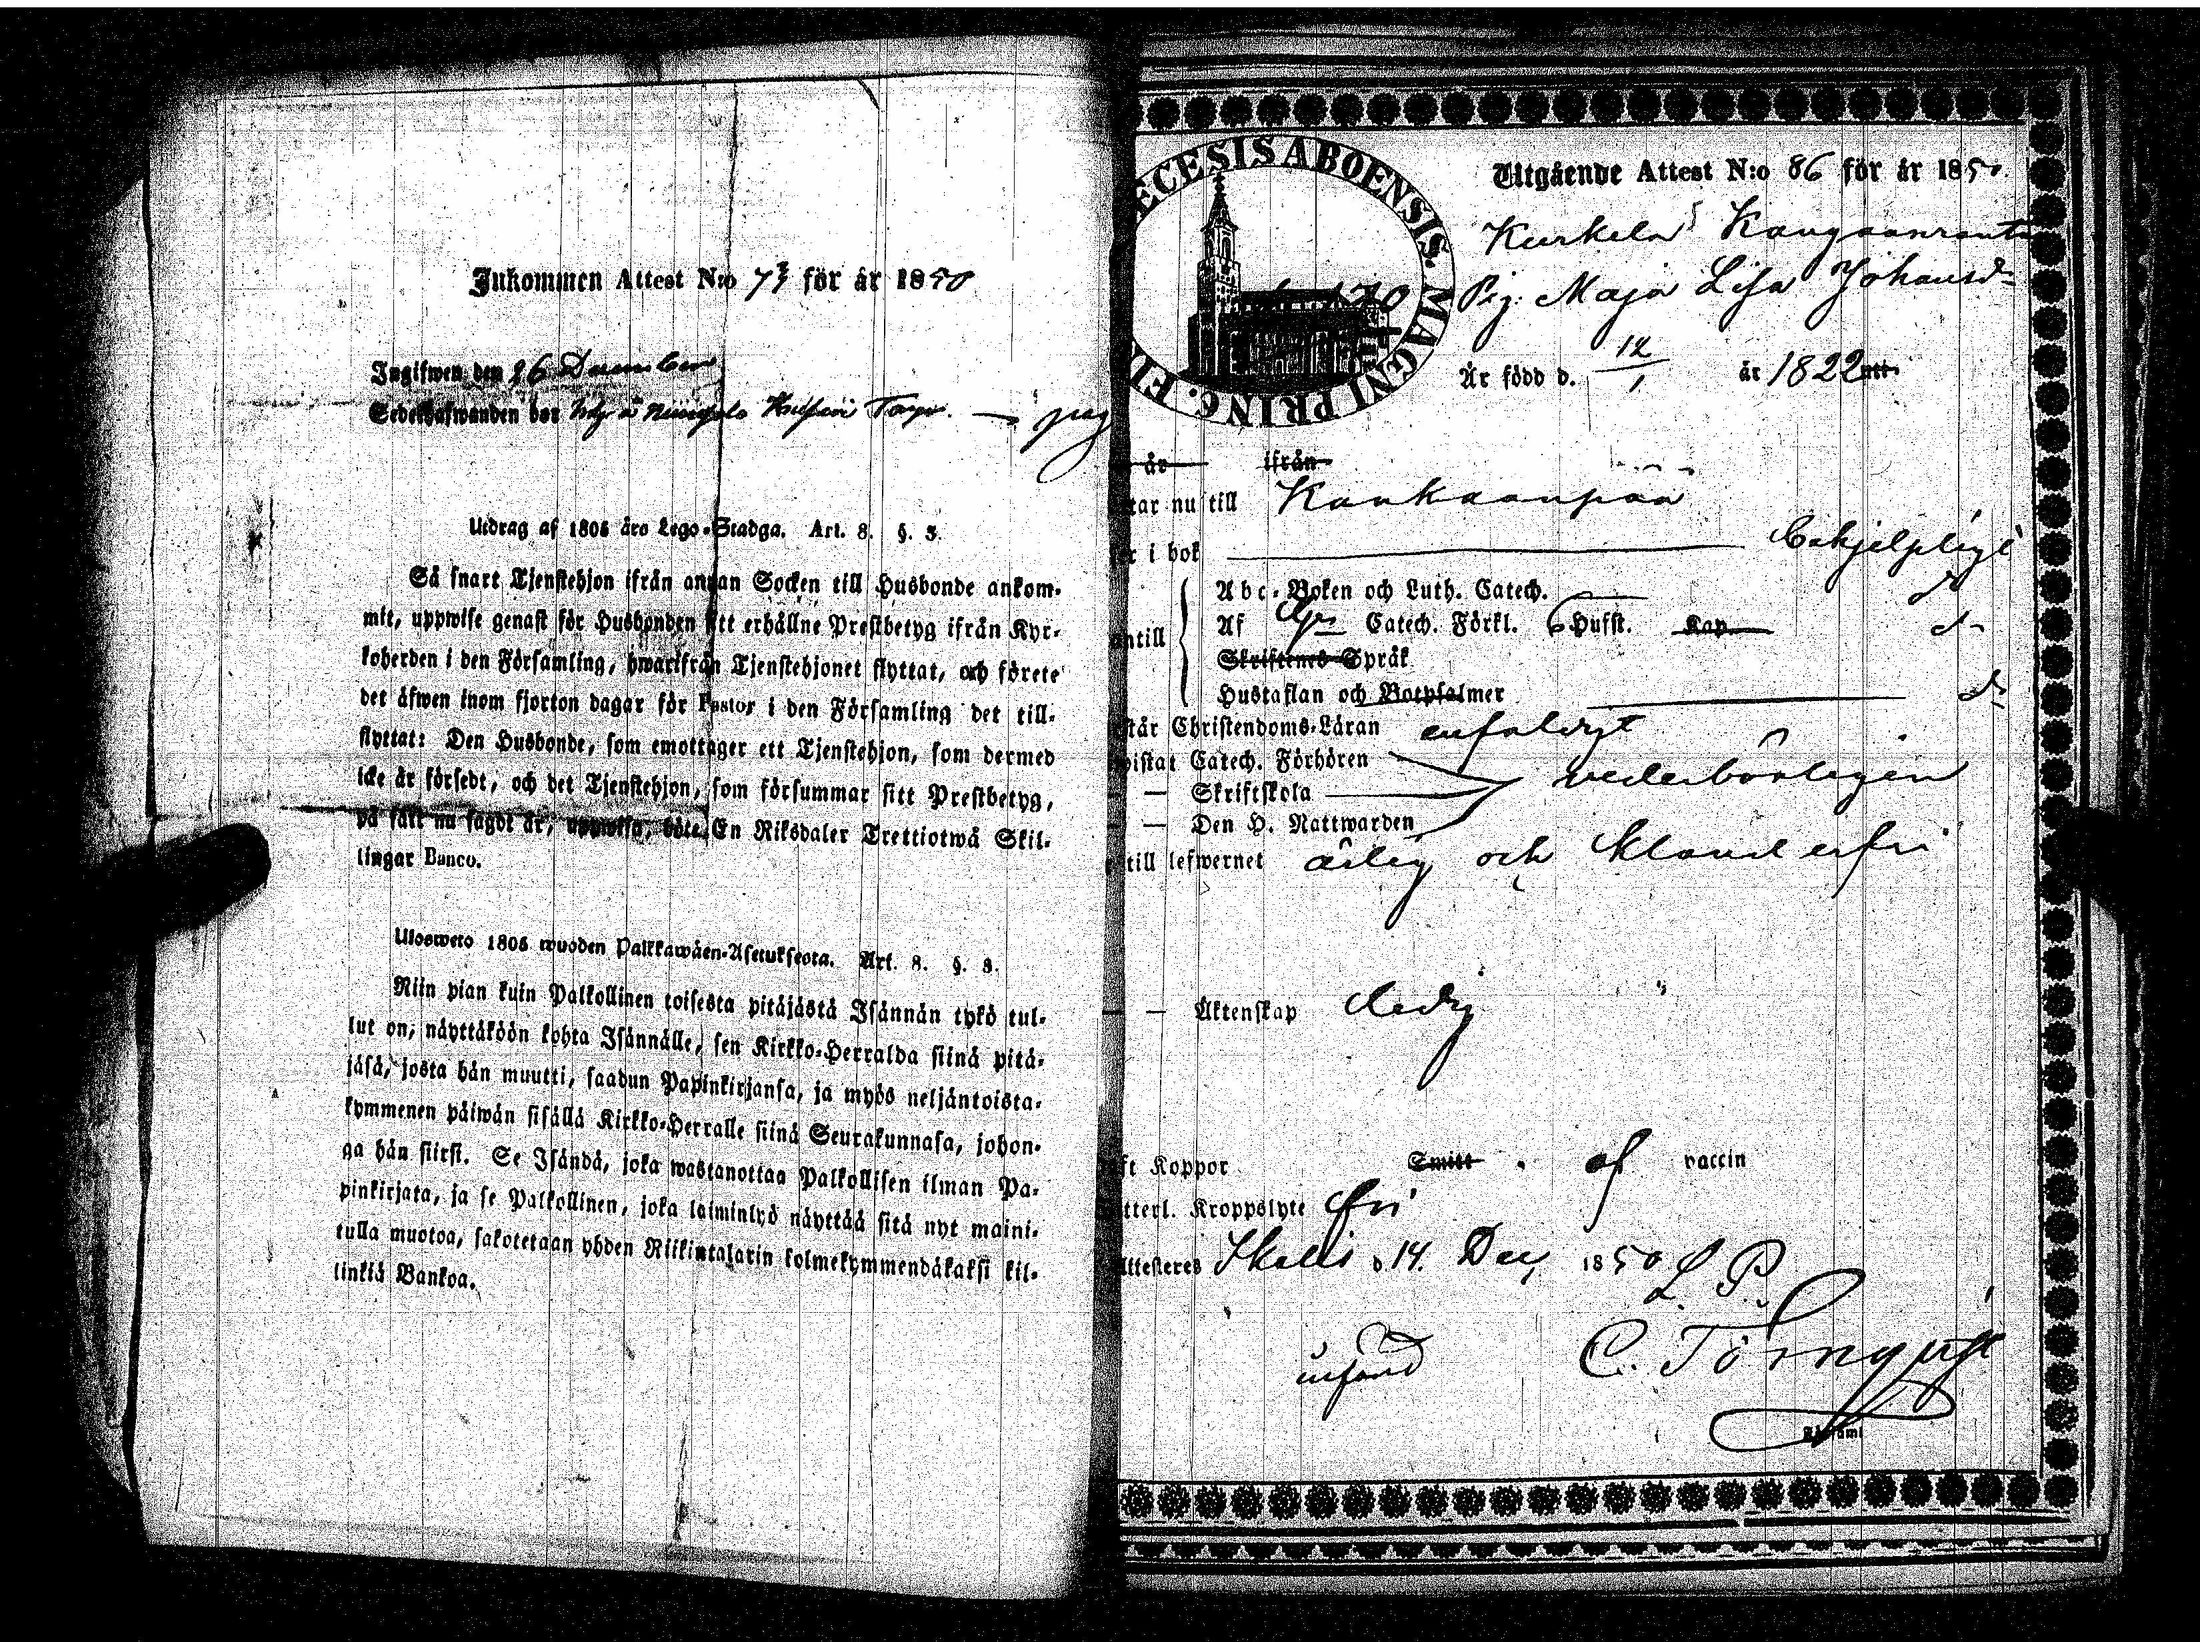 Inkommen Attest N:o 73 för år 1850
Ingifwen den 26 December
Sedelhafwanden bor
Utdrag af 1805 åro Lego-Stadga. Art. 8. §. 3.
Så snart Tjenstehjon ifrån annan Socken till Husbonde ankom-
mit, uppwise genast för Husbonden sitt erhållne Prestbetyg ifrån Kyr-
koherden i den Församling, hwarifrån Tjenstehjonet flyttat, och förete
det äfwen inom fjorton dagar för Pastor i den Församling det till-
flyttat: Den Husbonde, som emottager ett Tjenstehjon, som dermed
icke är försedt, och det Tjenstehjon, som försummar sitt Prestbetyg,
på sätt nu sagdt är, uppwisa, böte En Riksdaler Trettiotwå Skil-
lingar Banco.
Ulosweto 1805 wuoden Palkkawäen-Asetukseota. Art. 8. §. 3.
Niin pian kuin Palkollinen toisesta pitäjästä Isännän tykö tul-
lut on, näyttäköön kohta Isännälle, sen Kirkko-Herralda siinä pitä-
jäsä, josta hän muutti, saadun Papinkirjansa, ja myös neljäntoista-
kymmenen päiwän sisällä Kirkko-Herralle siinä Seurakunnasa, johon-
ga hän siirsi. Se Isändä, joka wastanottaa Palkollisen ilman Pa-
pinkirjata, ja se Palkollinen, joka laiminlyö näyttää sitä nyt maini-
tulla muotoa, sakotetaan yhden Riikintalarin kolmekymmendäkaksi kil-
linkiä Bankoa.
ECESIS ABOENSIS. MAGNI PRINC. FI
Utgående Attest N:o 86 för år 1850.
Kurkela Kangaanranta
Pig. Maja Lisa Johansd-
Är född d. 12/1 år 1822
år ifrån
tar nu till Kankaanpää
r i bok Behjelpligt
Abc-Boken och Luth. Catech. d-
Af Catech. Förkl. 6 Hufst. Kap. d-
antill
Skriftenes Språk
Hustaflan och Botpsalmer d-
står Christendoms-Läran enfaldigt
wistat Catech. Förhören
— Skriftskola wederbörligen
— Den H. Nattwarden
till lefwernet ärlig och klanderfri
— — Äktenskap Ledig
ft Koppor Smitt af vaccin
tterl. Kroppslyte fri
Attesteres d 14. Dec, 1850
L. P.
C. Törnqvist